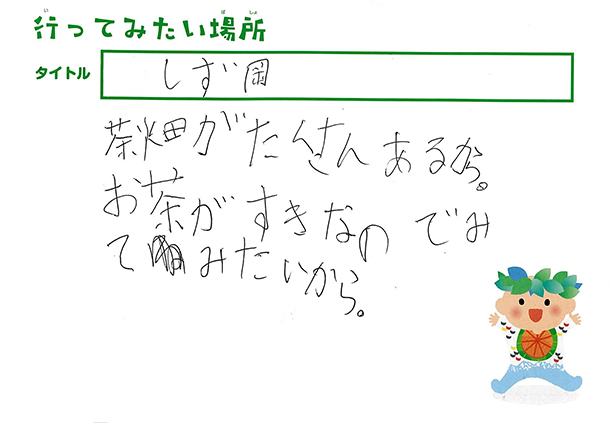 行ってみたい場所
タイトル
しず岡
茶畑がたくさんあるから。
お茶がすきなのでみ
てみたいから。